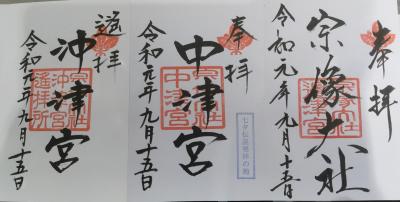 奉拝
宗像大社
令和元年九月十五日
奉拝
中津宮
令和元年九月十五日
七夕伝説発祥の地
遥拝
沖津宮
令和元年九月十五日
沖津宮
遙拝所